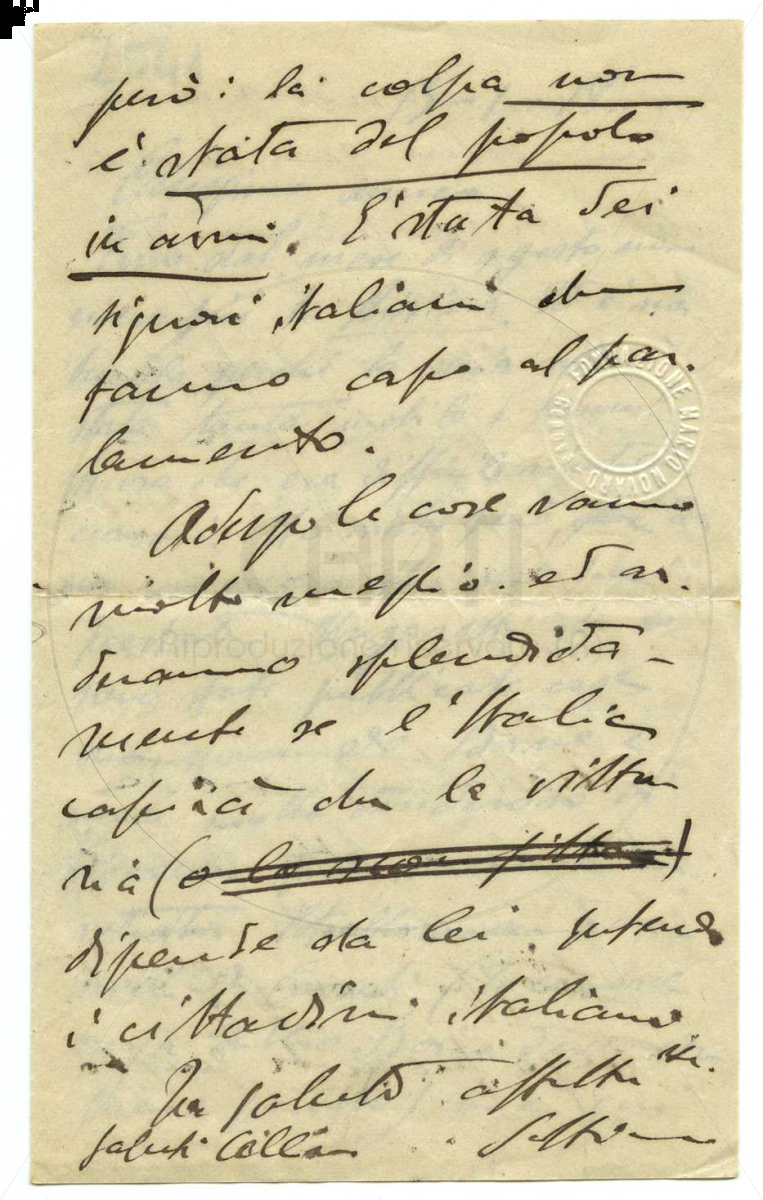 però: la colpa non
è stata del popolo
in armi. È stata dei
signori italiani che
fanno capo al par-
lamento.
Adesso le cose vanno
molto meglio. ed an-
dranno splendida-
mente se l'Italia
capirà che la vitto
ria (o la non vittoria)
dipende da lei.
i cittadini italiani
Un saluto affett.
saluti
FONDAZIONE MARIO NOVARO
CARTI